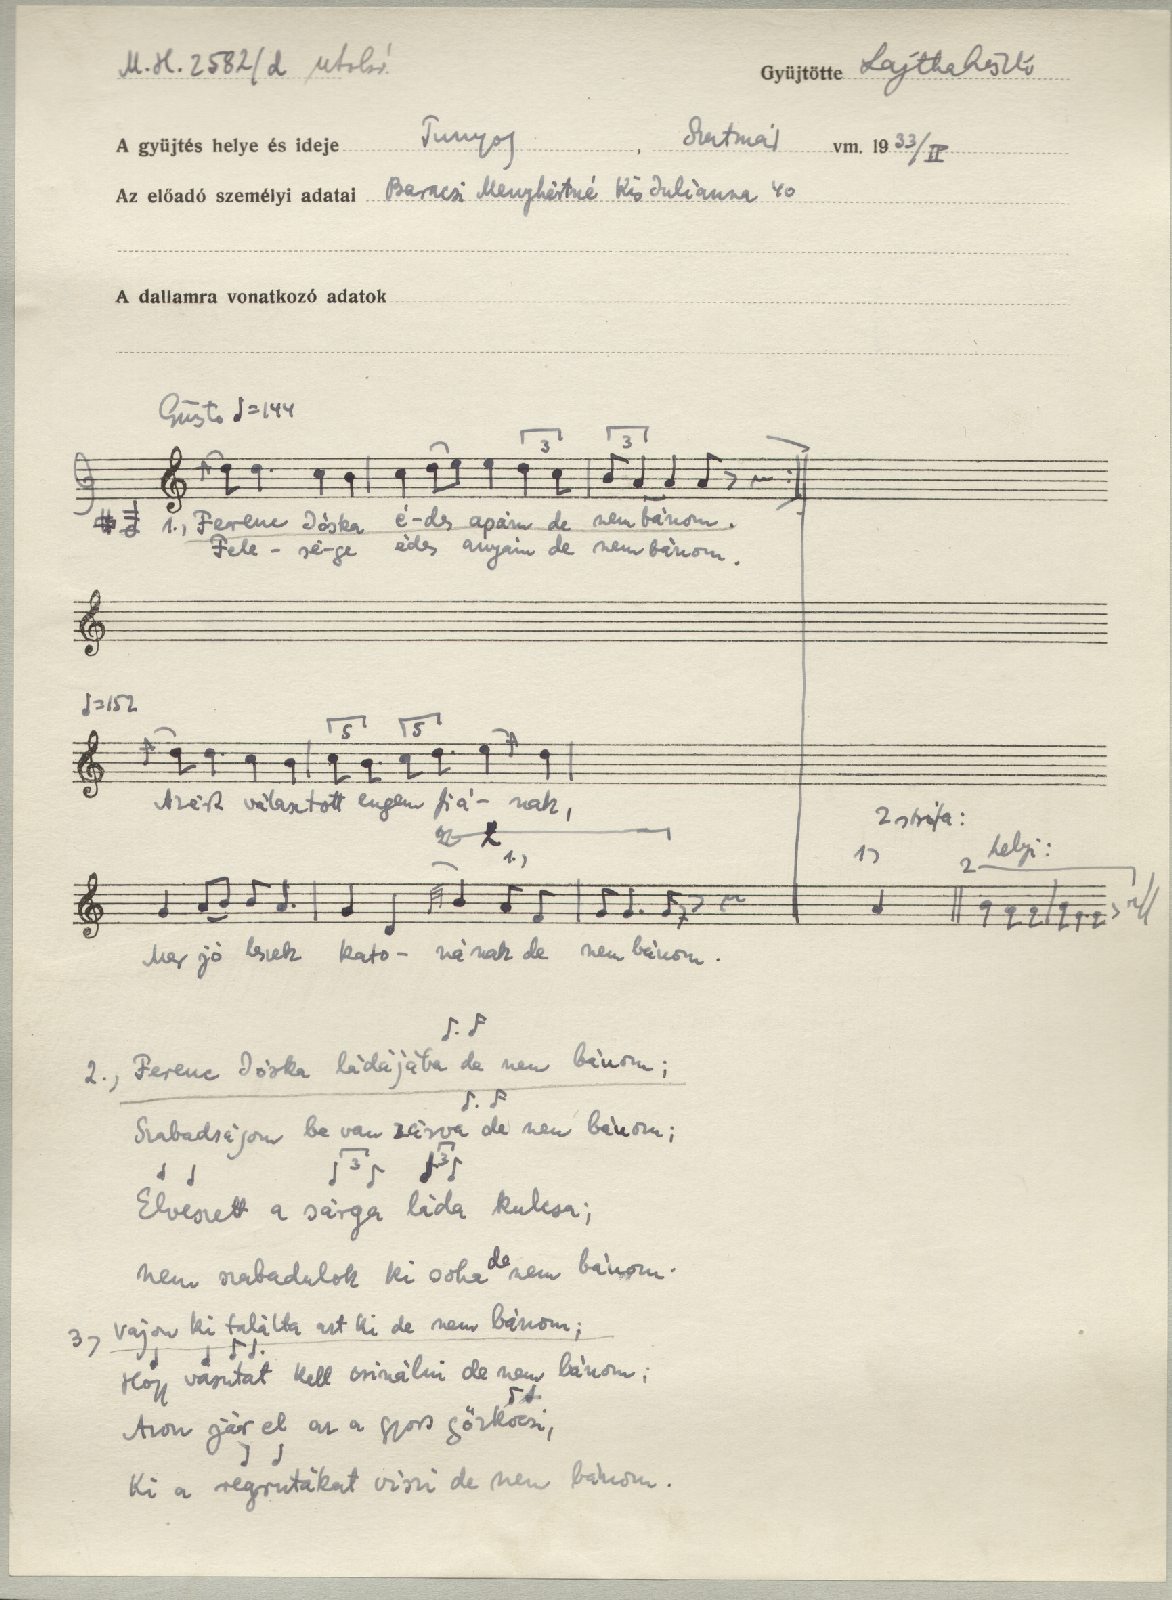 M.H. 2582/d utolsó
Gyüjtötte Lajtha László
A gyüjtés helye és ideje Tunyog, Szatmár vm. 1933/IV
Az előadó személyi adatai Baracsi Menyhértné Kis Julianna 40
A dallamra vonatkozó adatok
Giusto ♩=144
3 3
1., Ferenc Jóska é-des apám de nem bánom.
Fele-sé-ge édes anyám de nem bánom.
♩=152
5 5
Azért választott engem fiá-nak,
2 strófa:
1., 1) 2 helyi:
Mer jó leszek kato-nának de nem bánom.
2., Ferenc Jóska ládájába de nem bánom;
Szabadságom be van zárva de nem bánom;
3 3
Elveszett a sárga láda kulcsa;
Nem szabadulok ki soha de nem bánom.
3) Vajon ki találta azt ki de nem bánom;
Hogy vasutat kell csinálni de nem bánom;
Azon jár el az a gyors gőzkocsi,
Ki a regrutákat viszi de nem bánom.